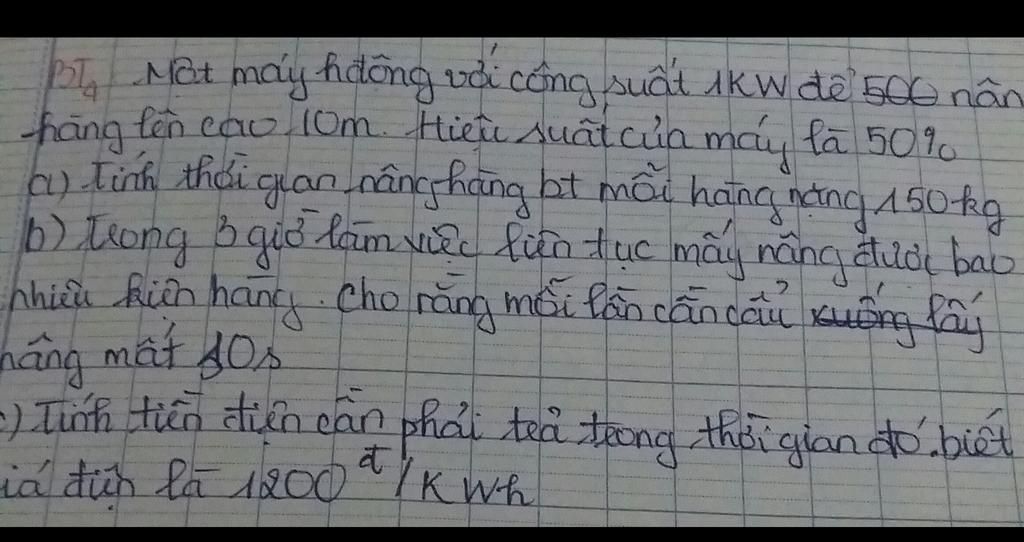 BT4 Một máy hđộng với công suất 1KW để 500 nân
hàng lên cao 10m. Hiệu suất của máy là 50%
a) Tính thời gian nâng hàng bt mỗi hàng nặng 150kg
b) Trong 3 giờ làm việc liên tục máy nâng được bao
nhiêu kiện hàng. Cho rằng mỗi lần cần cẩu xuống lấy
hàng mất 10s
c) Tính tiền điện cần phải trả trong thời gian đó. biết
iá điện là 1200đ/KWh